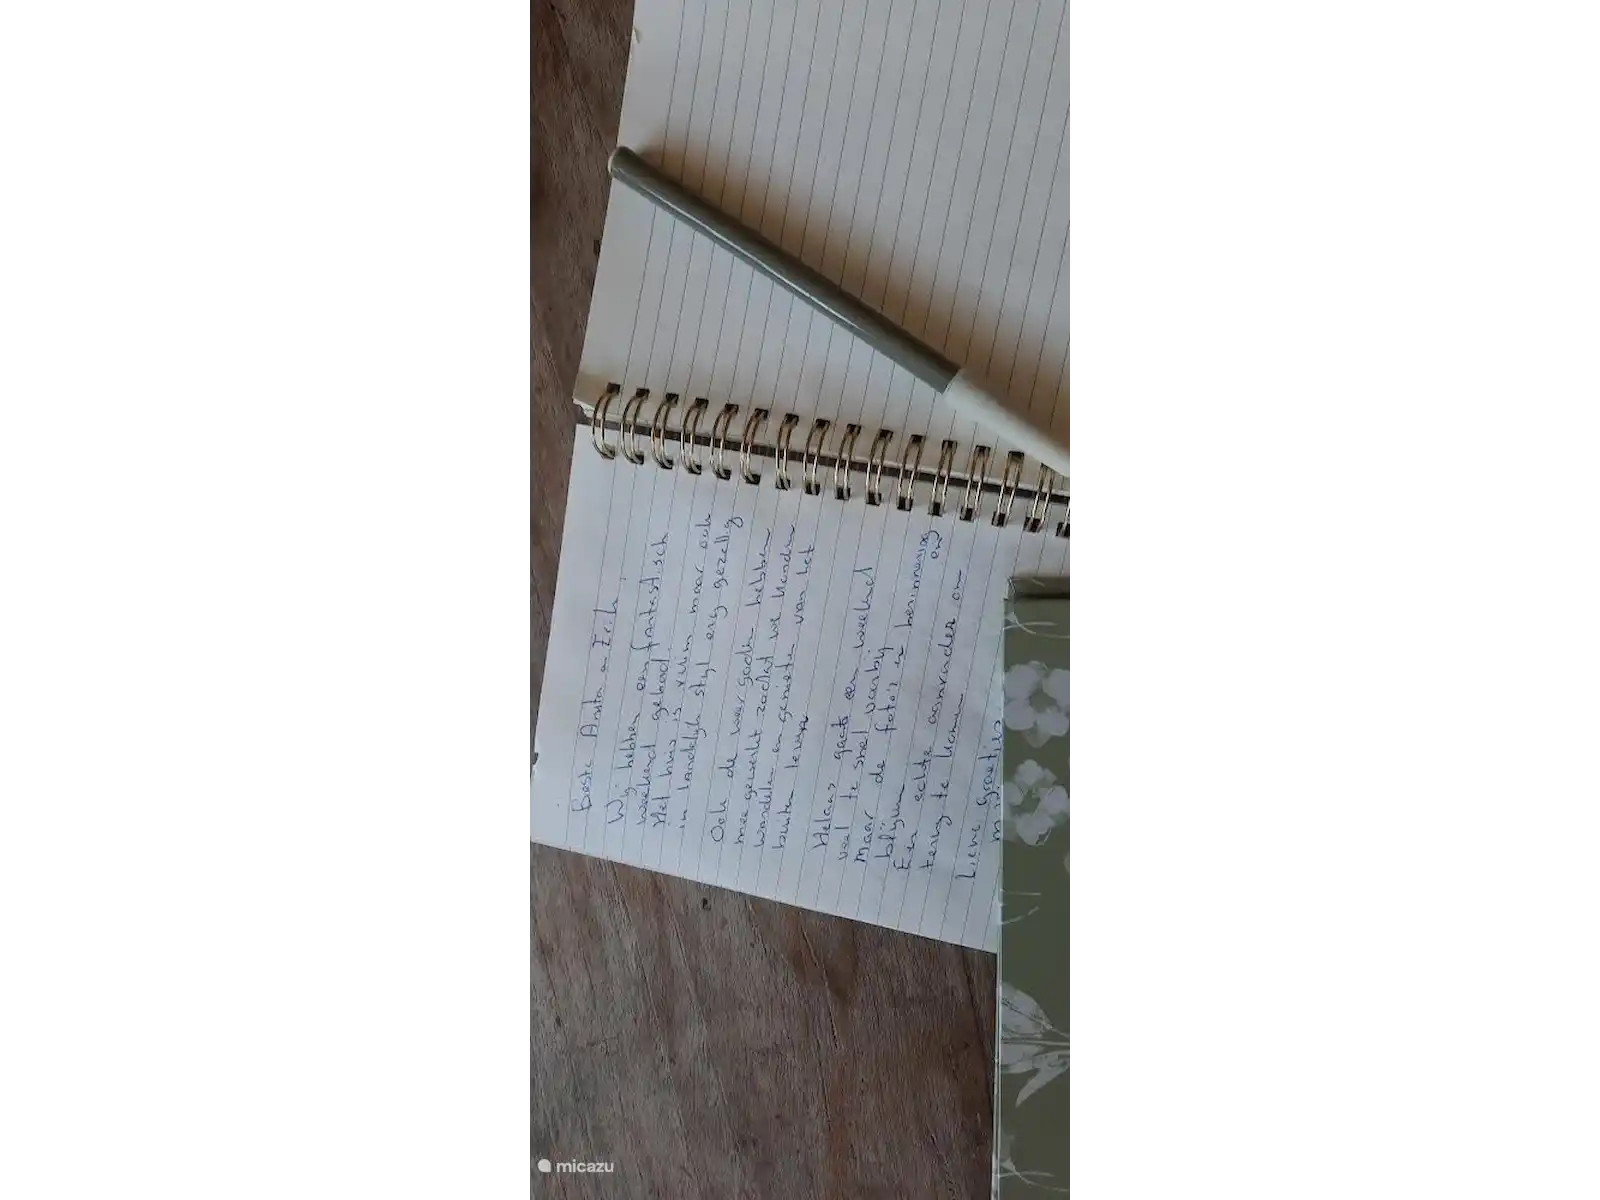 Beste Anita en Erik,
Wij hebben een fantastisch
weekend gehad.
Het huis is ruim maar ook
in landelijk stijl erg gezellig
Ook de weer goden hebben
mee gewerkt zodat we konden
wandelen en genieten van het
buiten leven
Helaas gaat een weekend
veel te snel voorbij
Maar de foto's en herinnering
blijven
Een echte aanrader en
terug te komen om
Lieve groetjes
micazu